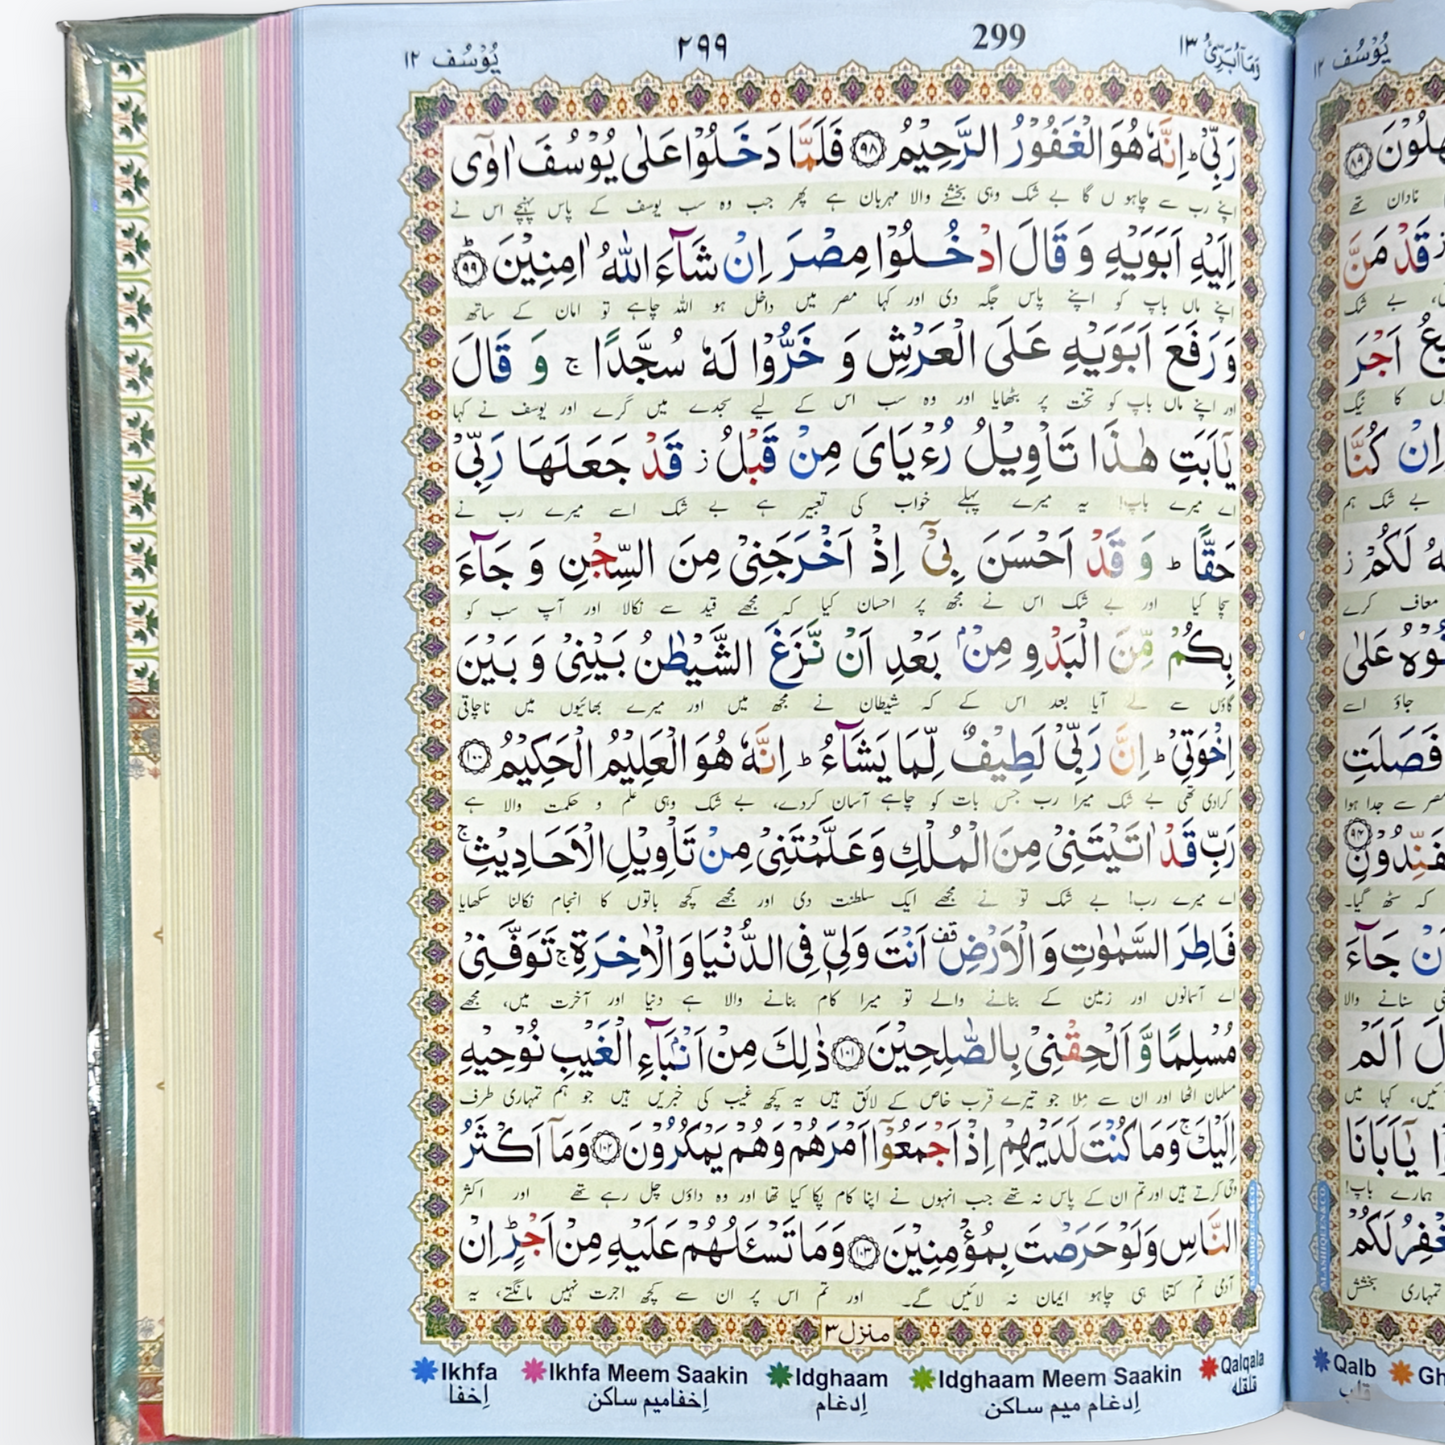 يُوْسُف ١٢
٢٩٩
299
وَمَاۤ اُبَرِّئُ ١٣
رَبِّيْ ؕ اِنَّهٗ هُوَ الْغَفُوْرُ الرَّحِيْمُ ٩٨ فَلَمَّا دَخَلُوْا عَلٰى يُوْسُفَ اٰوٰٓى
اپنے رب سے چاہو ں گا بے شک وہی بخشنے والا مہربان ہے پھر جب وہ سب یوسف کے پاس پہنچے اس نے
اِلَيْهِ اَبَوَيْهِ وَ قَالَ ادْخُلُوْا مِصْرَ اِنْ شَآءَ اللّٰهُ اٰمِنِيْنَ ؕ ٩٩
اپنے ماں باپ کو اپنے پاس جگہ دی اور کہا مصر میں داخل ہو اللہ چاہے تو امان کے ساتھ
وَ رَفَعَ اَبَوَيْهِ عَلَى الْعَرْشِ وَ خَرُّوْا لَهٗ سُجَّدًا ۚ وَ قَالَ
اور اپنے ماں باپ کو تخت پر بٹھایا اور وہ سب اس کے لیے سجدے میں گرے اور یوسف نے کہا
يٰۤاَبَتِ هٰذَا تَاْوِيْلُ رُءْيَايَ مِنْ قَبْلُ ز قَدْ جَعَلَهَا رَبِّيْ
اے میرے باپ! یہ میرے پہلے خواب کی تعبیر ہے بے شک اسے میرے رب نے
حَقًّا ؕ وَ قَدْ اَحْسَنَ بِيْۤ اِذْ اَخْرَجَنِيْ مِنَ السِّجْنِ وَ جَآءَ
سچا کیا اور بے شک اس نے مجھ پر احسان کیا کہ مجھے قید سے نکالا اور آپ سب کو
بِكُمْ مِّنَ الْبَدْوِ مِنْۢ بَعْدِ اَنْ نَّزَغَ الشَّيْطٰنُ بَيْنِيْ وَ بَيْنَ
گاؤں سے لے آیا بعد اس کے کہ شیطان نے مجھ میں اور میرے بھائیوں میں ناچاقی
اِخْوَتِيْ ؕ اِنَّ رَبِّيْ لَطِيْفٌ لِّمَا يَشَآءُ ؕ اِنَّهٗ هُوَ الْعَلِيْمُ الْحَكِيْمُ ١٠٠
کرادی تھی بے شک میرا رب جس بات کو چاہے آسان کردے، بے شک وہی علم و حکمت والا ہے
رَبِّ قَدْ اٰتَيْتَنِيْ مِنَ الْمُلْكِ وَ عَلَّمْتَنِيْ مِنْ تَاْوِيْلِ الْاَحَادِيْثِ ۚ
اے میرے رب! بے شک تو نے مجھے ایک سلطنت دی اور مجھے کچھ باتوں کا انجام نکالنا سکھایا
فَاطِرَ السَّمٰوٰتِ وَ الْاَرْضِ قف اَنْتَ وَلِيّٖ فِي الدُّنْيَا وَ الْاٰخِرَةِ ۚ تَوَفَّنِيْ
اے آسمانوں اور زمین کے بنانے والے تو میرا کام بنانے والا ہے دنیا اور آخرت میں، مجھے
مُسْلِمًا وَّ اَلْحِقْنِيْ بِالصّٰلِحِيْنَ ١٠١ ذٰلِكَ مِنْ اَنْۢبَآءِ الْغَيْبِ نُوْحِيْهِ
مسلمان اٹھا اور ان سے مِلا جو تیرے قرب خاص کے لائق ہیں یہ کچھ غیب کی خبریں ہیں جو ہم تمہاری طرف
اِلَيْكَ ۚ وَ مَا كُنْتَ لَدَيْهِمْ اِذْ اَجْمَعُوْۤا اَمْرَهُمْ وَ هُمْ يَمْكُرُوْنَ ١٠٢ وَ مَاۤ اَكْثَرُ
وحی کرتے ہیں اور تم ان کے پاس نہ تھے جب انہوں نے اپنا کام پکا کیا تھا اور وہ داؤں چل رہے تھے اور اکثر
النَّاسِ وَ لَوْ حَرَصْتَ بِمُؤْمِنِيْنَ ١٠٣ وَ مَا تَسْـَٔلُهُمْ عَلَيْهِ مِنْ اَجْرٍ ؕ اِنْ
آدمی تم کتنا ہی چاہو ایمان نہ لائیں گے۔ اور تم اس پر ان سے کچھ اجرت نہیں مانگتے، یہ
منزل ٣
Ikhfa
اِخفا
Ikhfa Meem Saakin
اِخفامیم ساکن
Idghaam
اِدغام
Idghaam Meem Saakin
اِدغام میم ساکن
Qalqala
قلقلہ
يُوْسُف ١٢
قَدْ مَنَّ
اَجْرَ
اِنْ كُنَّا
لَكُمْ ز
فَصَلَتِ
جَآءَ
اَلَمْ
يٰۤاَبَانَا
لَكُمْ
Qalb
قلب